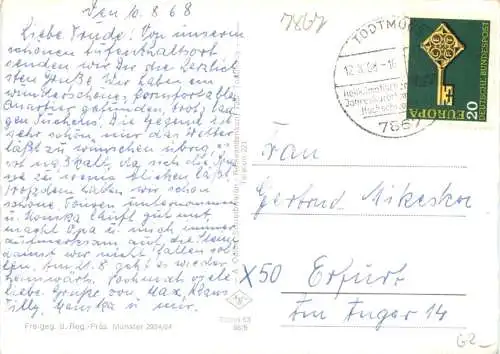 Den 10.8.68
Liebe Trude! Von unserm
schönen Aufenthaltsort
senden wir Dir die herzlich
sten Grüße. Wir haben ein
wunderschönes, komfortables
Quartier gefunden, trotz lan
gen Suchens. Die Gegend ist
sehr schön, nur das Wetter
läßt zu wünschen übrig, es
ist zu kalt, da sich die
zu wenig blicken läßt
trotzdem haben wir schon
schöne Touren unternommen
u. läuft gut mit,
macht Opa u. mich immer
aufmerksam auf die
damit wir nicht fallen sol
len. Am 21.8 geht es wieder
heimwärts. Nochmals viele
liebe Grüße von Max, Klaus
Tilly, u. mir.
Freigeg. d. Reg.-Präs. Münster 2904/64
7867
TODTMOOS
12.8.68-16
7867
EUROPA
20
DEUTSCHE BUNDESPOST
Frau
Gertrud Mikeska
X50 Erfurt
Im Anger 14
G2-